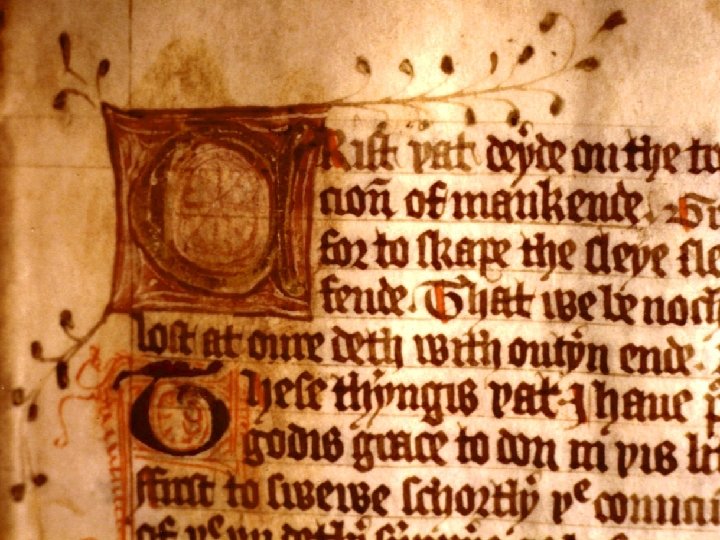 CRist þat deyde on the
cioñ of mankende.
for to skape the sleye
fende. That we be
lost at oure deth with outyn ende.
These thyngis þat I haue
godis grace to don in þis
ffirst to swewe schortly þᵉ
of þᵉ